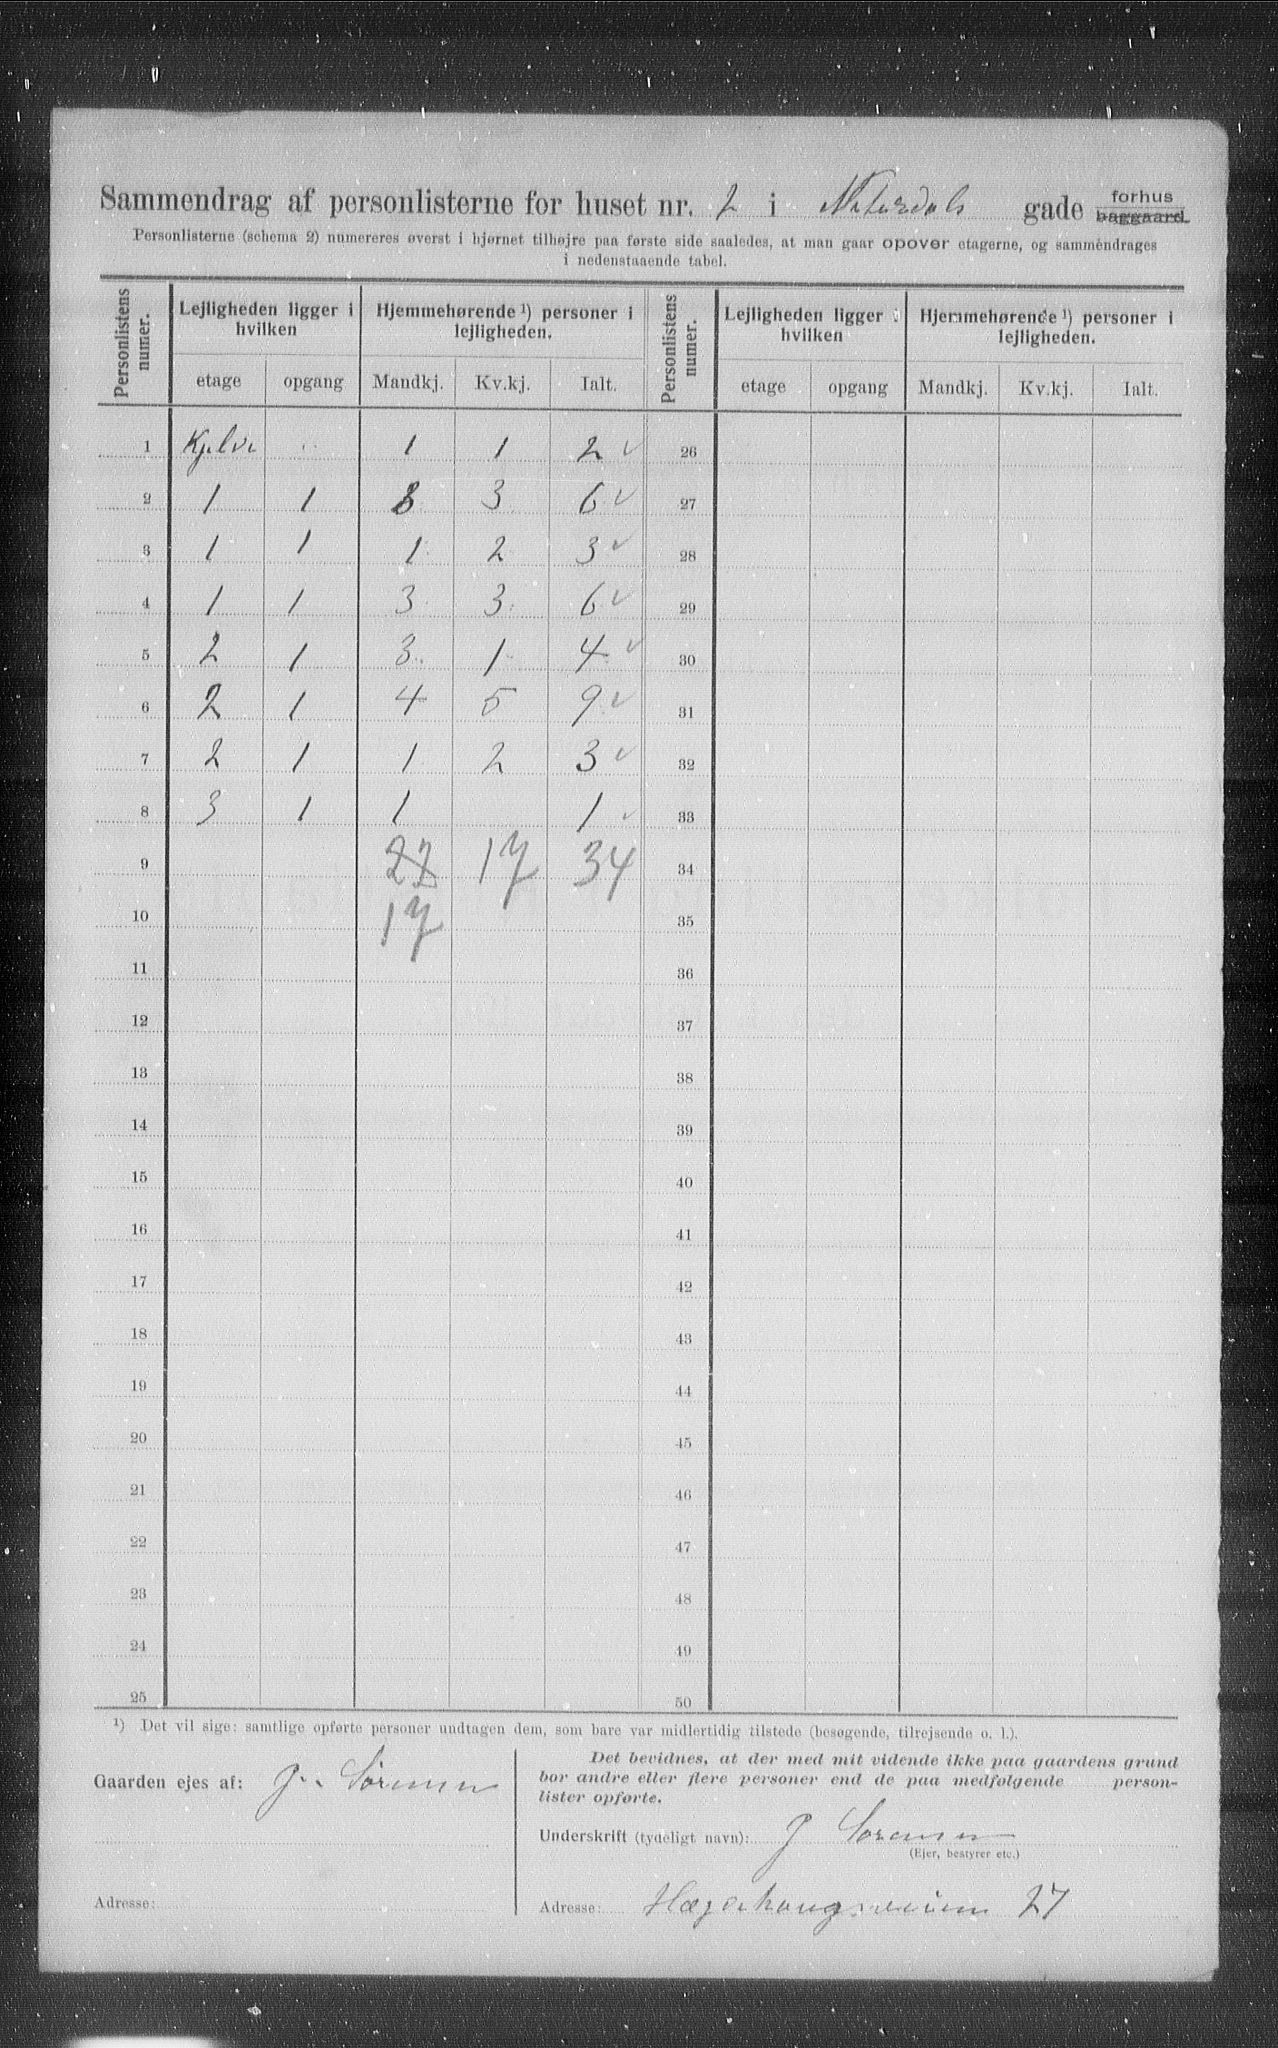 Sammendrag af personlisterne for huset nr. 2 i gade forhus baggaard.
Personlisterne (schema 2) numereres øverst i hjørnet tilhøjre paa første side saaledes, at man gaar opover etagerne, og sammendrages
i nedenstaaende tabel.
Personlistens numer. Lejligheden ligger i hvilken Hjemmehørende ¹) personer i lejligheden. Personlistens numer. Lejligheden ligger i hvilken Hjemmehørende ¹) personer i lejligheden.
etage opgang Mandkj. Kv.kj. Ialt. etage opgang Mandkj. Kv.kj. Ialt.
1 1 1 2 ✓ 26
2 1 1 3 3 6 ✓ 27
3 1 1 1 2 3 ✓ 28
4 1 1 3 3 6 ✓ 29
5 2 1 3 1 4 ✓ 30
6 2 1 4 5 9 ✓ 31
7 2 1 1 2 3 ✓ 32
8 3 1 1 1 ✓ 33
9 22 17 34 34
10 17 35
11 36
12 37
13 38
14 39
15 40
16 41
17 42
18 43
19 44
20 45
21 46
22 47
23 48
24 49
25 50
¹) Det vil sige: samtlige opførte personer undtagen dem, som bare var midlertidig tilstede (besøgende, tilrejsende o. l.).
Gaarden ejes af: J. Sørensen
Adresse:
Det bevidnes, at der med mit vidende ikke paa gaardens grund
bor andre eller flere personer end de paa medfølgende person-
lister opførte.
Underskrift (tydeligt navn): J Sørensen
(Ejer, bestyrer etc.)
Adresse: Hægdehaugsveien 27